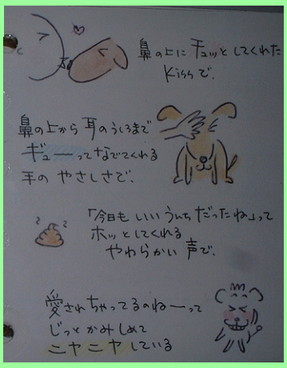 鼻の上に チュッと してくれた
Kissで.
鼻の上から 耳のうしろまで
ギューってなでてくれる
手の やさしさで.
「今日も いいうんち だったね」って
ホッとしてくれる
やわらかい 声で.
愛されちゃってるのねーって
じっとかみしめて
ニヤニヤしている